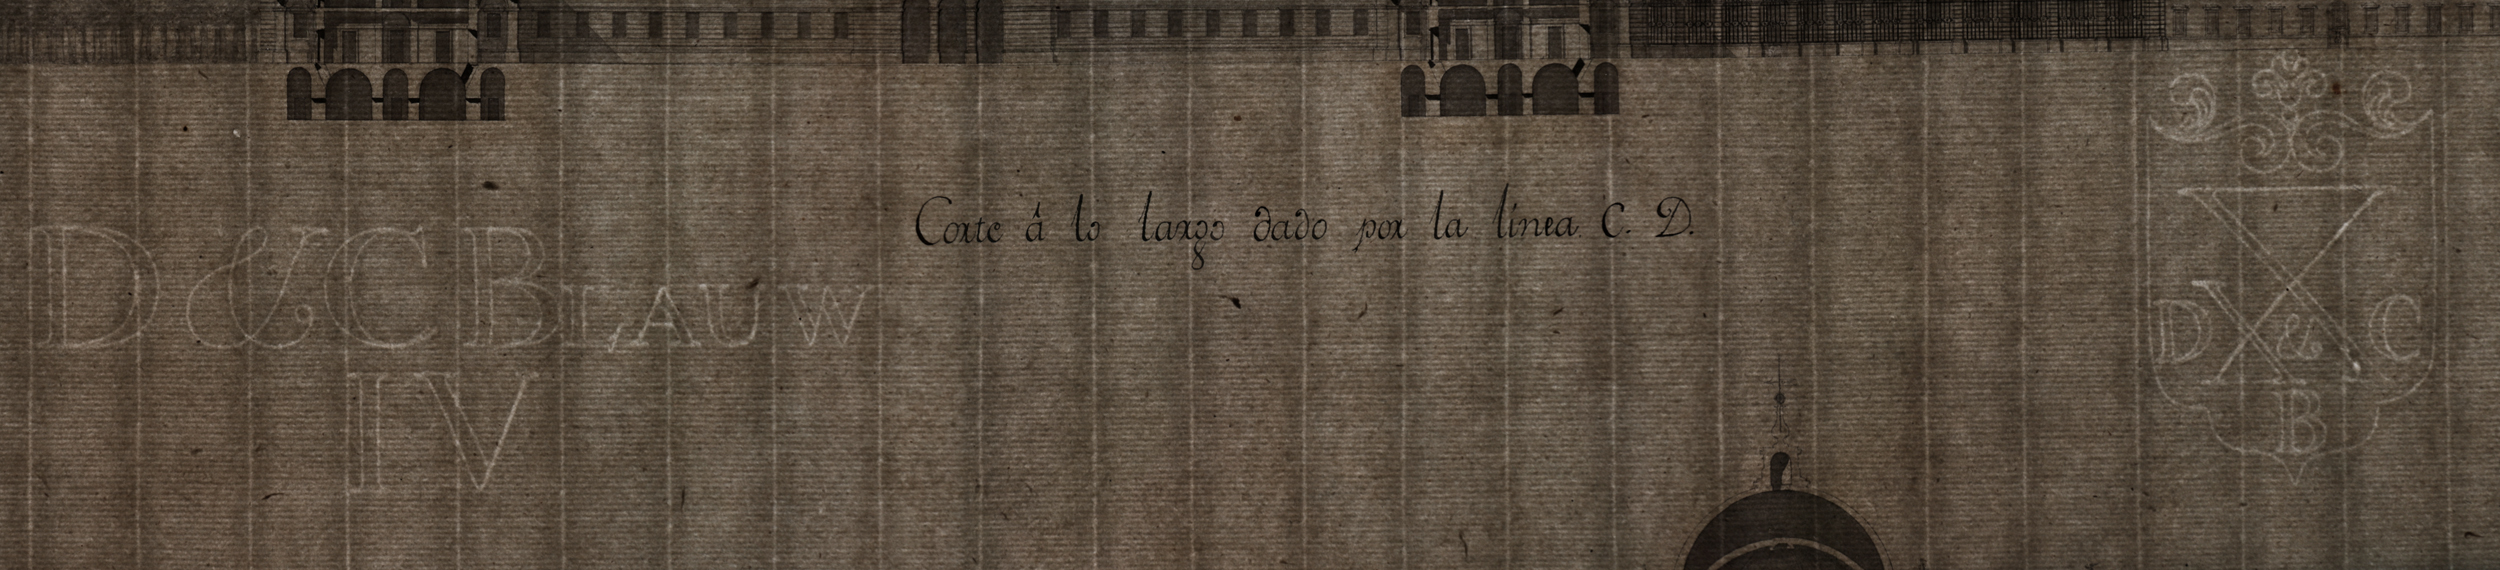 Corte á lo largo dado por la linea C. D.
D & C BLAUW
IV
D & C
B